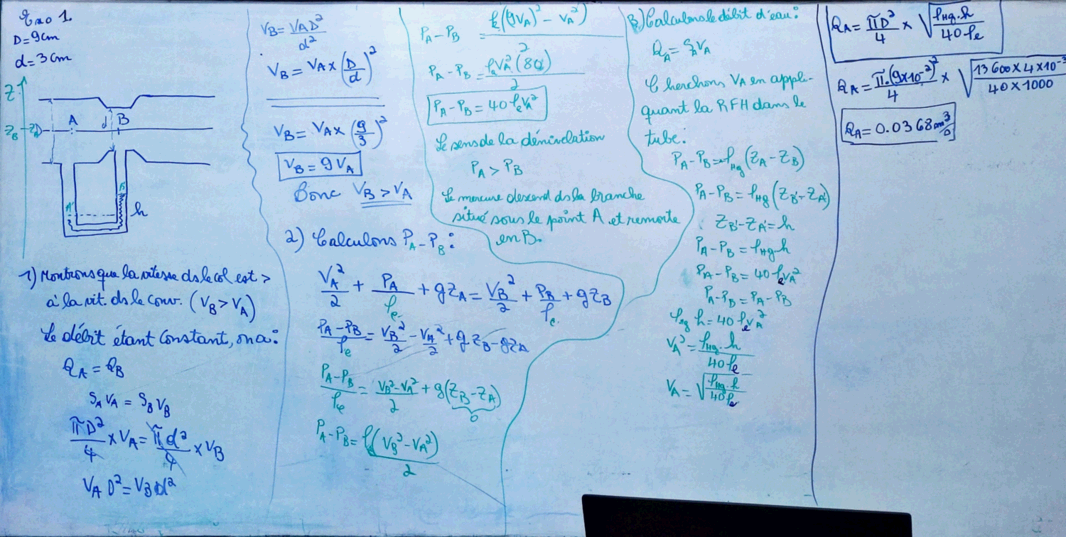 Exo 1.
D=9cm
d=3cm
Z
Z_B Z_A
A B
d
D
A' B'
h
1) Montrons que la vitesse ds le col est >
à la vit. ds le conv. (V_B > V_A)
Le débit étant constant, on a:
Q_A = Q_B
S_A V_A = S_B V_B
πD²/4 × V_A = πd²/4 × V_B
V_A D² = V_B d²
V_B = V_A D²/d²
V_B = V_A × (D/d)²
V_B = V_A × (9/3)²
V_B = 9 V_A
Donc V_B > V_A
2) Calculons P_A - P_B:
V_A²/2 + P_A/ρ_e + gZ_A = V_B²/2 + P_B/ρ_e + gZ_B
(P_A - P_B)/ρ_e = V_B²/2 - V_A²/2 + gZ_B - gZ_A
(P_A - P_B)/ρ_e = (V_B² - V_A²)/2 + g(Z_B - Z_A)
0
P_A - P_B = ρ_e(V_B² - V_A²)/2
P_A - P_B = ρ_e((9V_A)² - V_A²)/2
P_A - P_B = ρ_e V_A²(80)/2
P_A - P_B = 40 ρ_e V_A²
Le sens de la dénivelation
P_A > P_B
Le mercure descend ds la branche
situé sous le point A et remonte
en B.
3) Calculons le débit d'eau:
Q_A = S_A V_A
Cherchons V_A en appli-
quant la RFH dans le
tube:
P_A - P_B = ρ_Hg (Z_A - Z_B)
P_A - P_B = ρ_Hg (Z_B' - Z_A')
Z_B' - Z_A' = h
P_A - P_B = ρ_Hg g h
P_A - P_B = 40 ρ_e V_A²
P_A - P_B = P_A - P_B
ρ_Hg h = 40 ρ_e V_A²
V_A² = ρ_Hg . h / 40 ρ_e
V_A = √(ρ_Hg . h / 40 ρ_e)
Q_A = πD²/4 × √(ρ_Hg . h / 40 ρ_e)
Q_A = π.(9×10⁻²)²/4 × √(13600 × 4×10⁻³ / 40×1000)
Q_A = 0.0368 m³/s